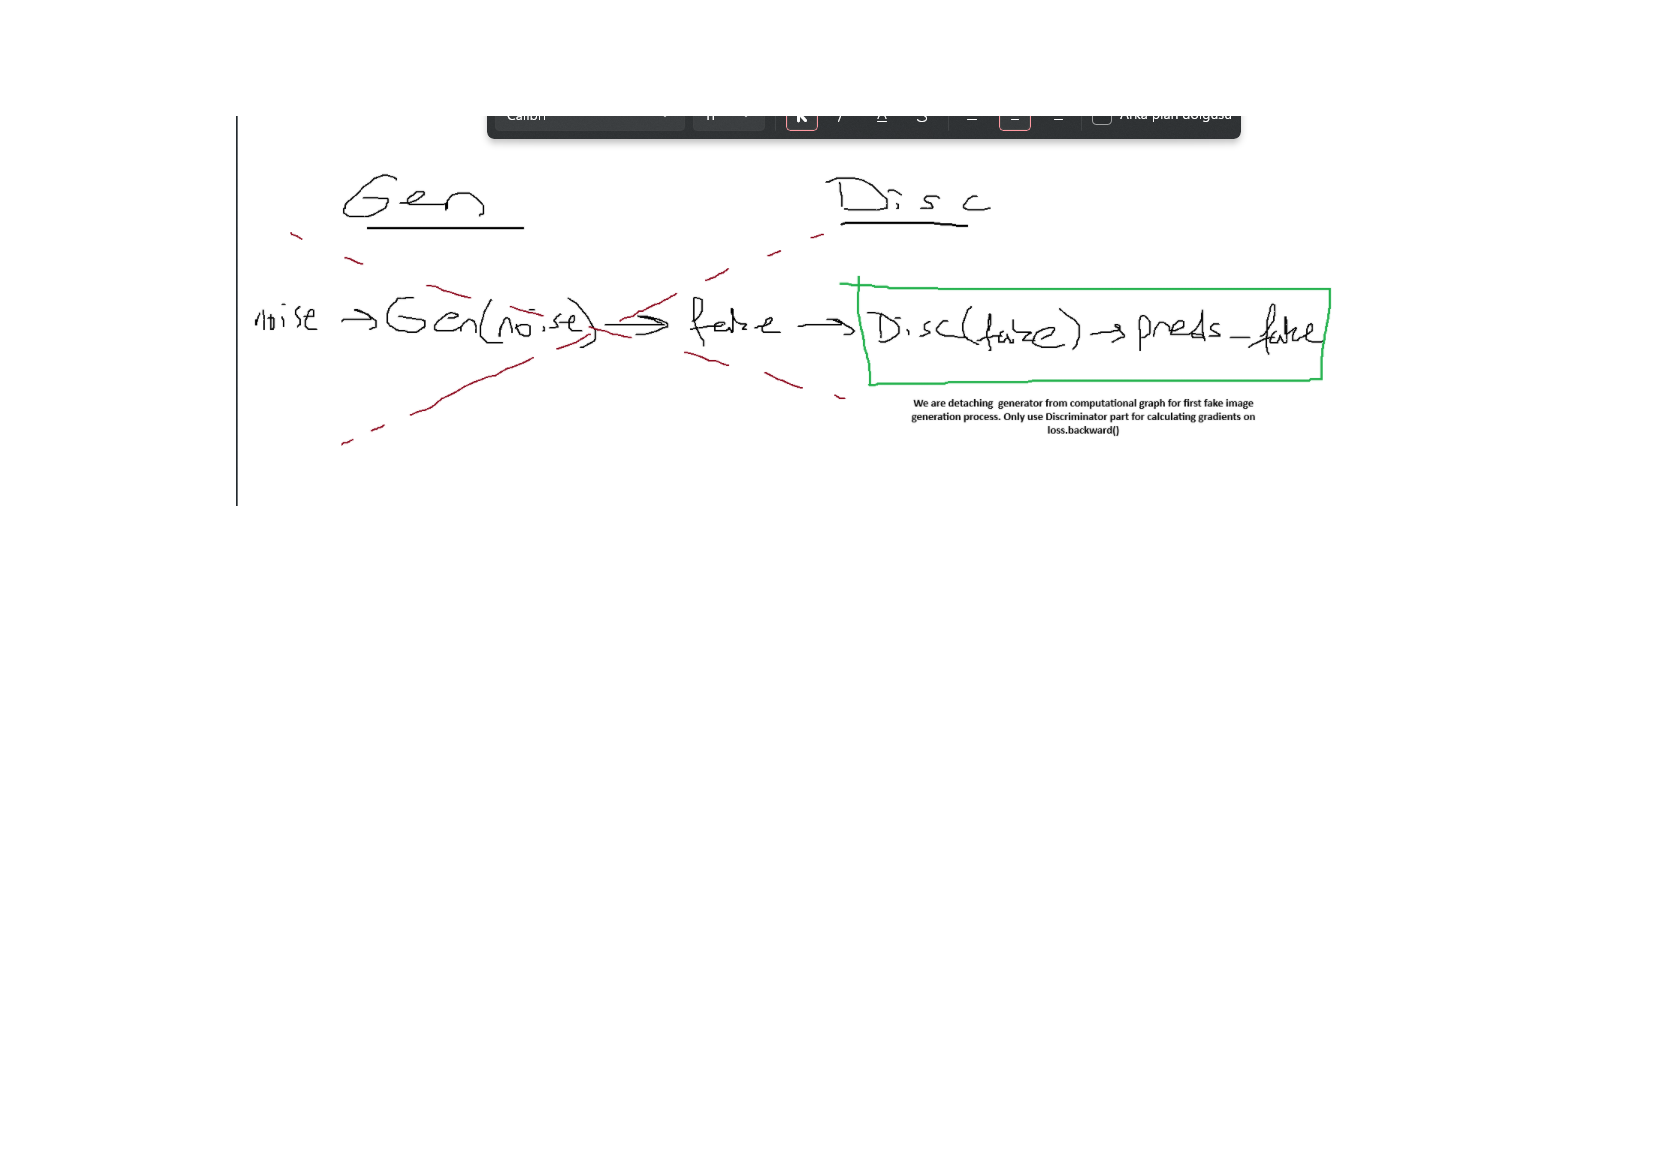 Calibri
11
K
Arka plan dolgusu
Gen
Disc
noise → Gen(noise) → fake → Disc(fake) → preds_fake
We are detaching generator from computational graph for first fake image
generation process. Only use Discriminator part for calculating gradients on
loss.backward()